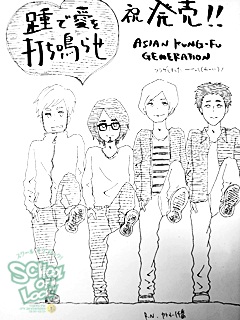 踵で愛を
打ち鳴らせ
祝 発売!!
ASIAN KUNG-FU
GENERATION
SCHOOL OF
LOCK!